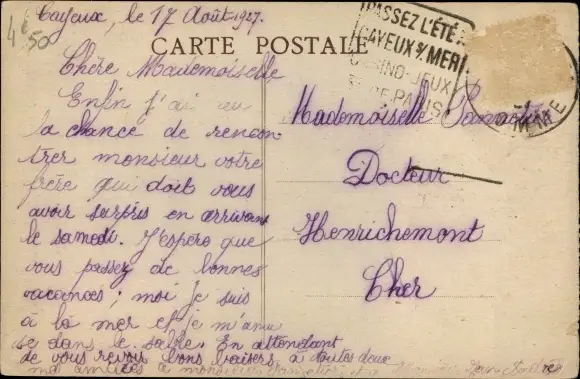 4 50
Cayeux, le 17 Août 1927.
CARTE POSTALE
PASSEZ L'ÉTÉ A
CAYEUX S/ MER
CASINO-JEUX
DE PARIS
MME
Chère Mademoiselle
Enfin j'ai eu
la chance de rencon
trer monsieur votre
frère qui doit vous
avoir surpris en arrivant
le samedi. J'espère que
vous passez de bonnes
vacances; moi je suis
à la mer et je m'amu
se dans le sable. En attendant
de vous revoir bons baisers à toutes deux
mes amitiés à monsieur et à Monsieur Jean André
Mademoiselle
Docteur
Henrichemont
Cher